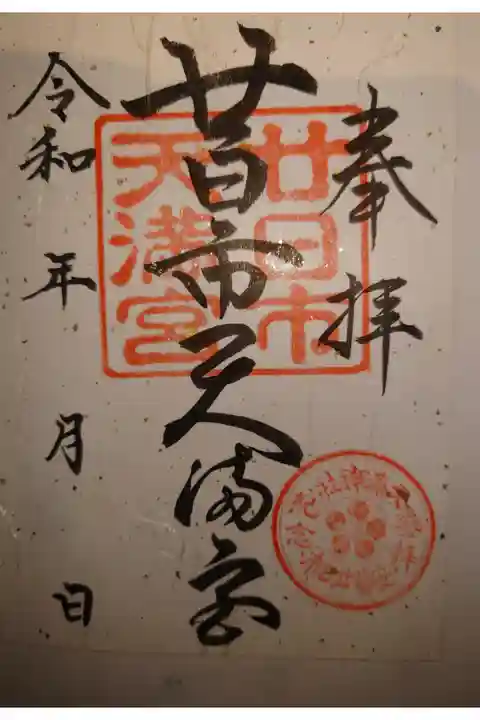 奉拝
廿日市天満宮
令和 年 月 日
廿日市
天満宮